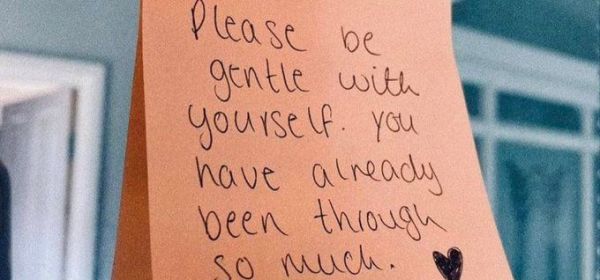 Please be
gentle with
yourself. you
have already
been through
so much. 🖤